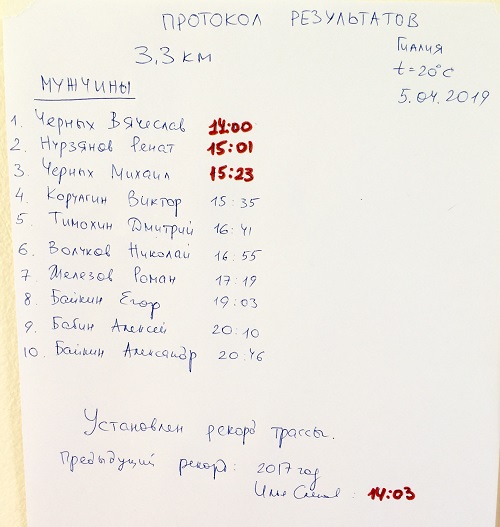 ПРОТОКОЛ РЕЗУЛЬТАТОВ
3,3 км
Гиалия
t = 20°C
5.04.2019
МУЖЧИНЫ
1. Черных Вячеслав 14:00
2. Нурзянов Ренат 15:01
3. Черных Михаил 15:23
4. Корчагин Виктор 15:35
5. Тимохин Дмитрий 16:41
6. Волчков Николай 16:55
7. Железов Роман 17:19
8. Байкин Егор 19:03
9. Бабин Алексей 20:10
10. Байкин Александр 20:46
Установлен рекорд трассы.
Предыдущий рекорд: 2017 год
14:03